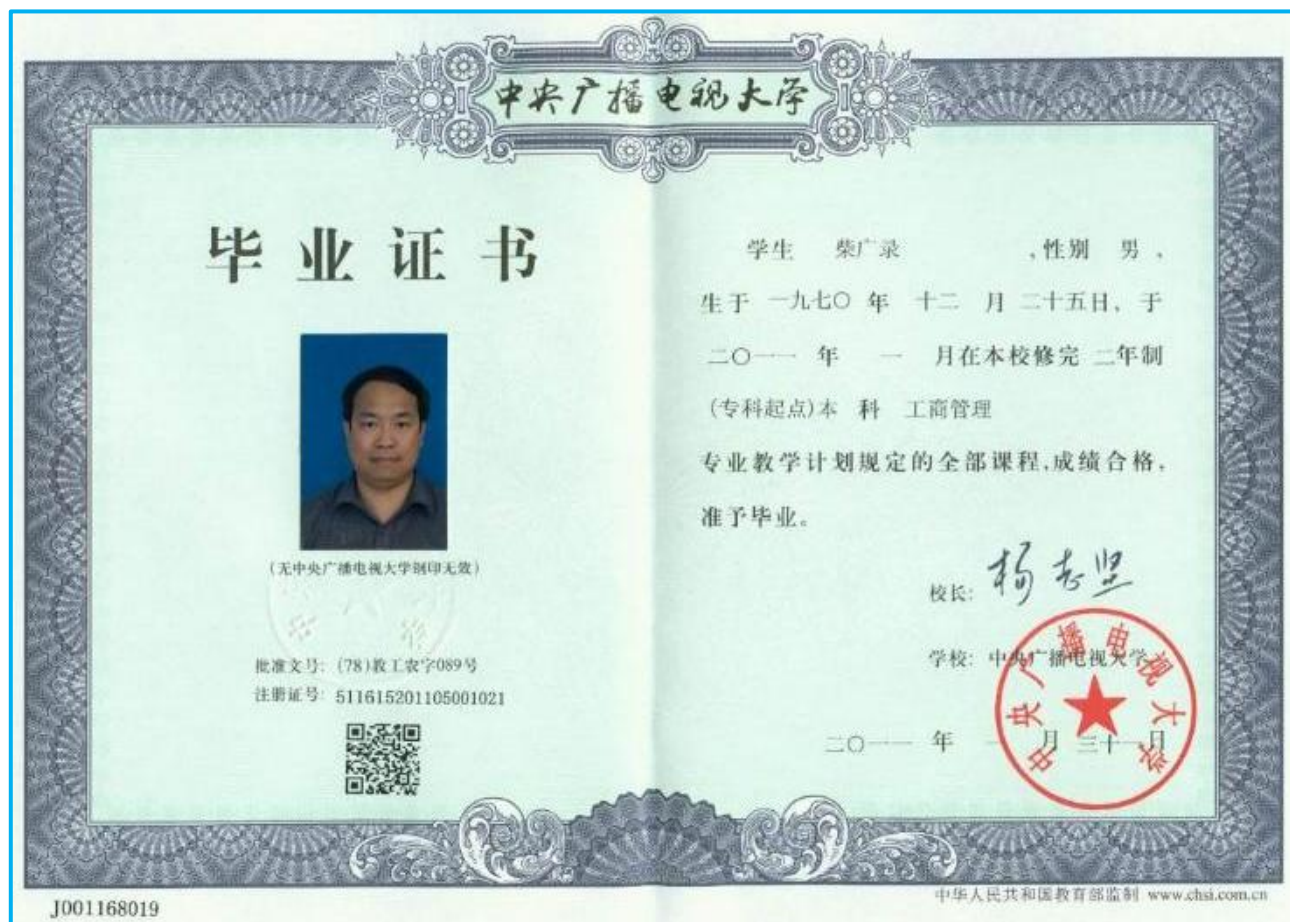 中央广播电视大学
毕业证书
(无中央广播电视大学钢印无效)
批准文号: (78)教工农字089号
注册证号: 511615201105001021
学生 柴广录 ,性别 男 、
生于 一九七〇 年 十二 月 二十五日、于
二〇一一 年 一 月在本校修完 二年制
(专科起点)本 科 工商管理
专业教学计划规定的全部课程,成绩合格,
准予毕业。
校长: 杨志坚
学校: 中央广播电视大学
中央广播电视大学
二〇一一 年 一 月 三十一日
中华人民共和国教育部监制 www.chsi.com.cn
J001168019